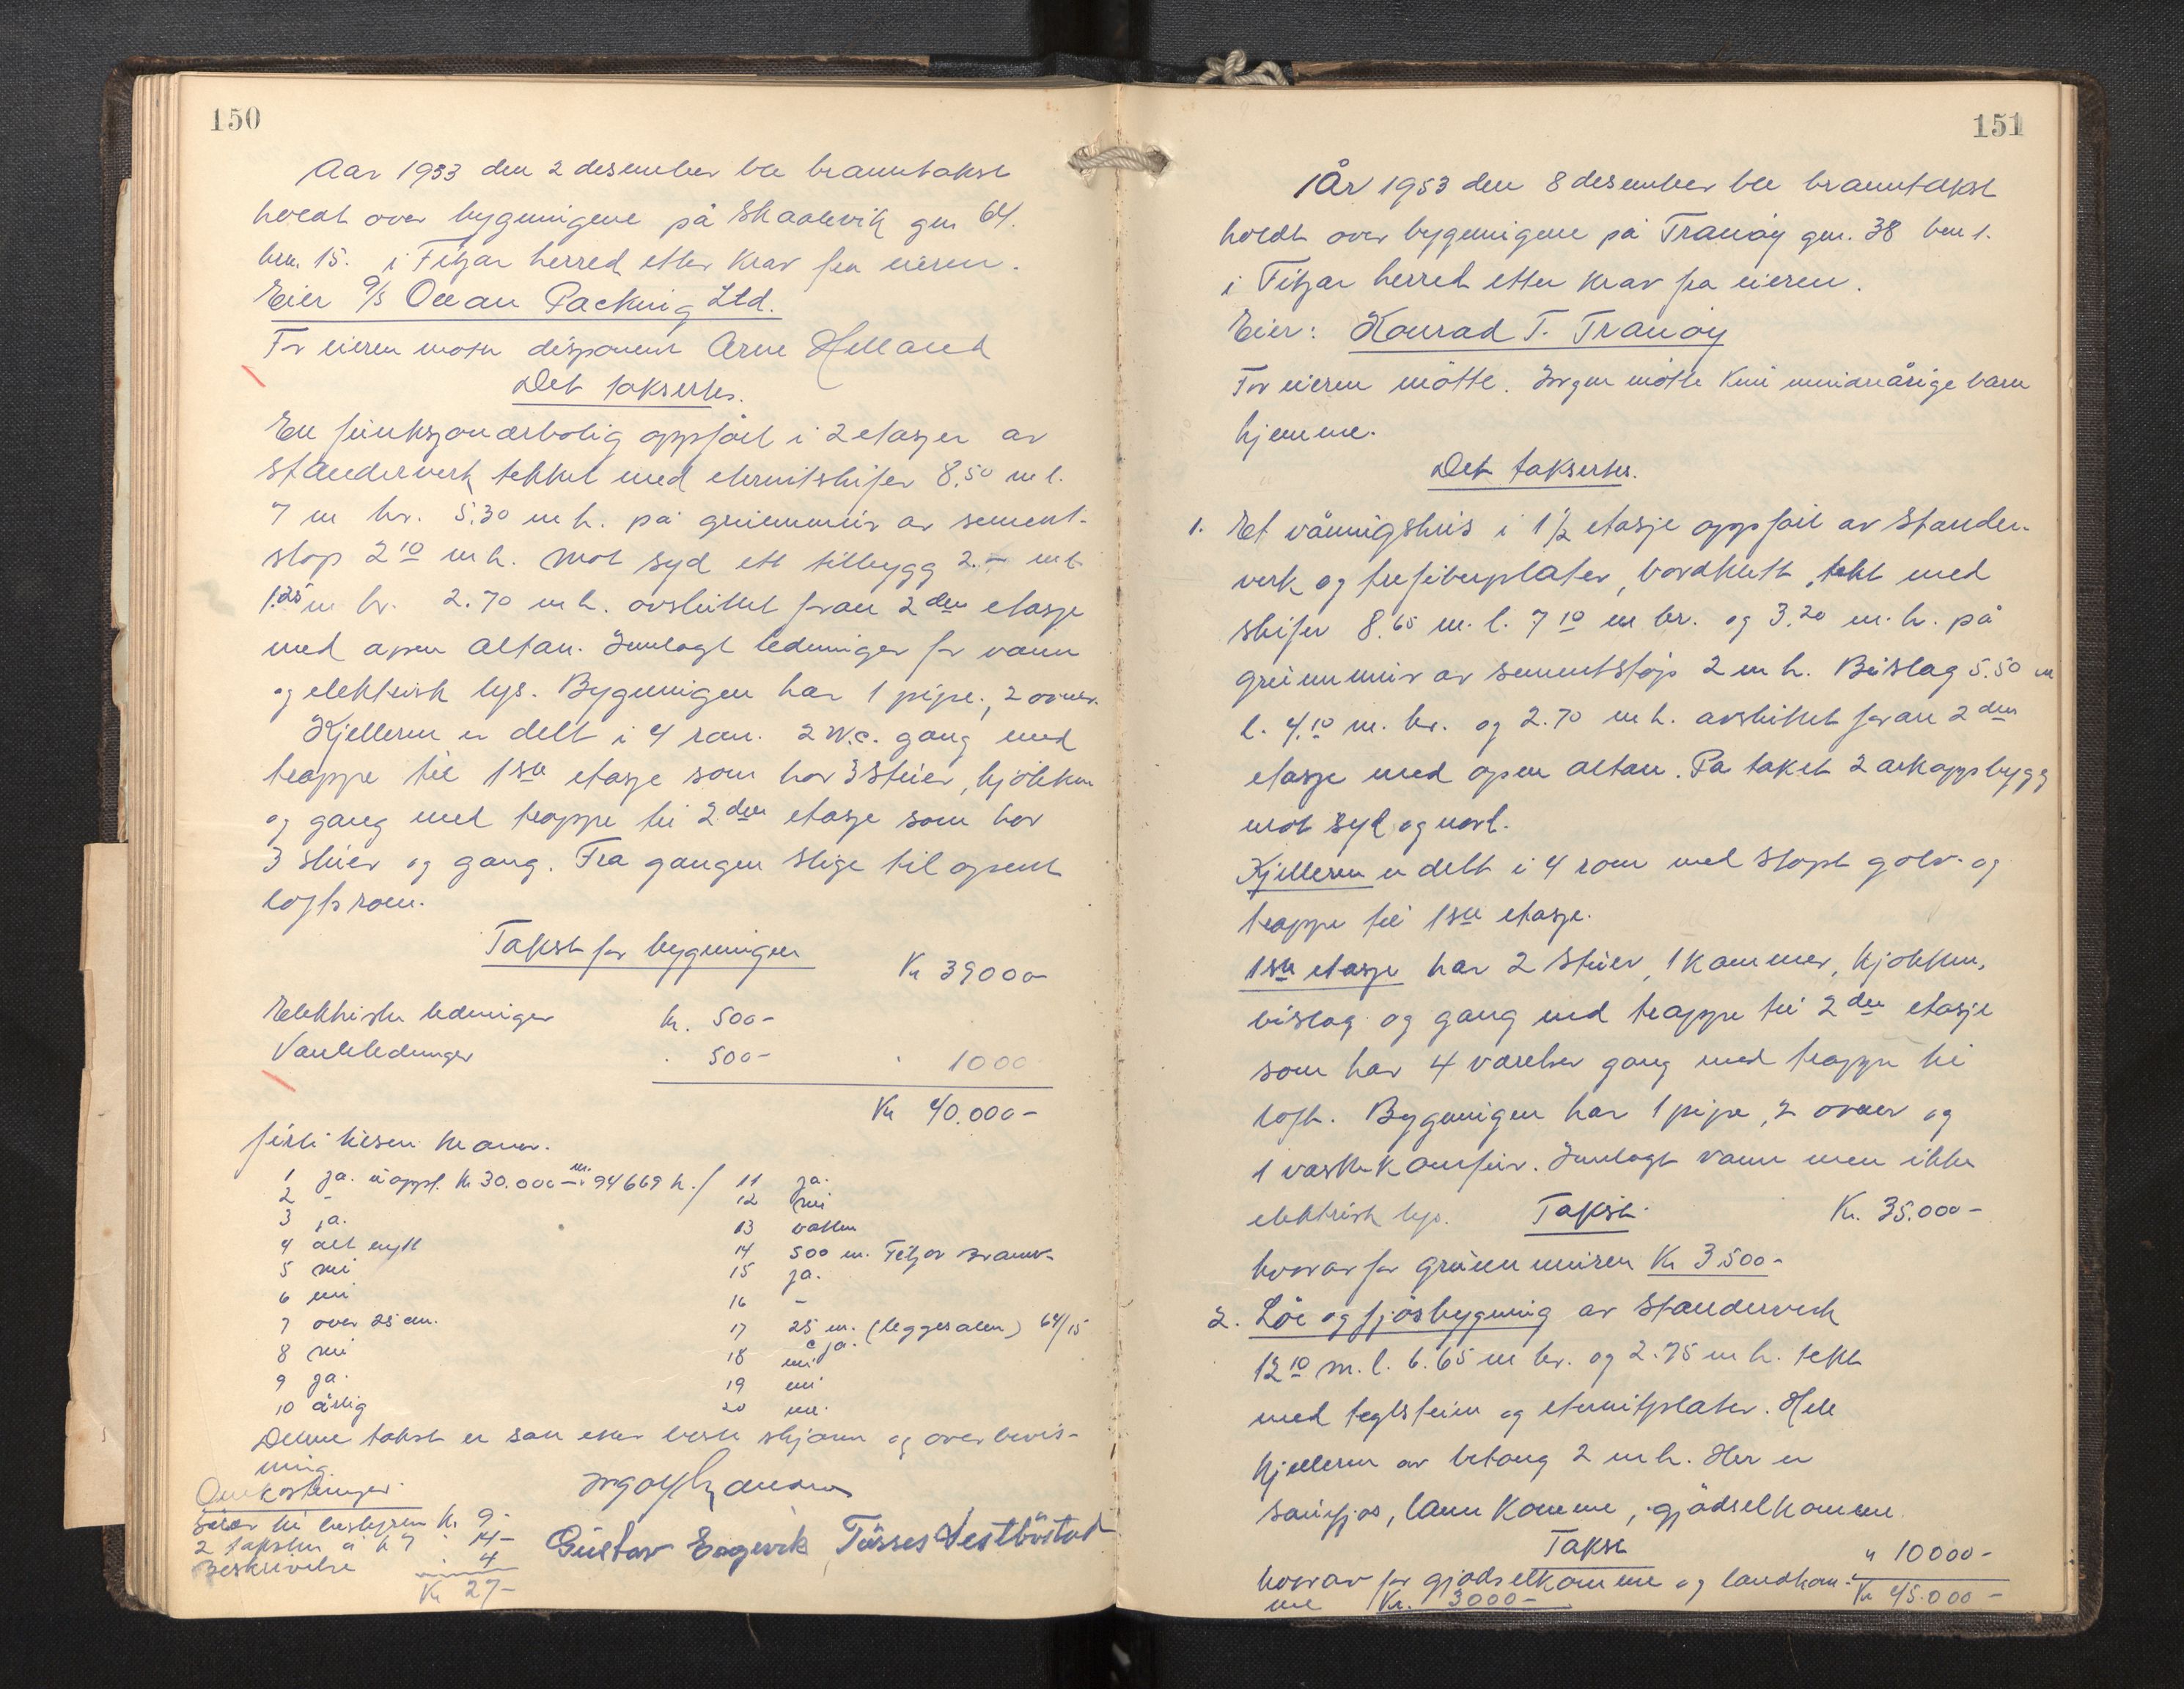 150
Aar 1953 den 2 desember ble branntakst
holdt over bygningene på Skaalevik gn 64.
brn. 15. i Fitjar herred etter krav fra eieren.
Eier A/S Ocean Packing Ltd.
For eieren møtte disponent Arne Helland
Det takseres.
En funksjonærbolig oppført i 2 etasjer av
standerverk, tekket med eternitskifer 8.50 m l.
7 m br. 5.30 m h. på grunnmur av sement-
støp 2 10 m h. Mot syd ett tilbygg 2.- m l
1.25 m br. 2.70 m h. avsluttet foran 2den etasje
med åpen altan. Innlagt ledninger for vann
og elektrisk lys. Bygningen har 1 pipe, 2 ovner.
Kjelleren er delt i 4 rom. 2 W.C. gang med
trappe til 1ste etasje som har 3 stuer, kjøkken
og gang med trappe til 2den etasje som har
3 stuer og gang. Fra gangen stige til åpent
loftsrom.
Takst for bygningen
Kr 39000-
Elektriske ledninger kr. 500-
Vannledninger . 500- " 1000
Kr 40.000-
1 ja. å oppl. Kr 30.000 - nr. 94669 h.
2 -
3 ja.
4 alt nytt
5 nei
6 nei
7 over 25 cm.
8 nei
9 ja.
10 årlig
11 ja.
12 nei
13 vatten
14 500 m. Fitjar Brannv.
15 ja.
16 -
17 25 m. (leggesalen) 64/15
c ja.
18 nei
19 nei
20 nei.
Denne takst er satt etter beste skjønn og overbevis-
ning.
Omkostninger.
til bestyreren kr. 9-
2 takstm. á kr 7 . 14-
Beskrivelse . 4
Kr 27-
Gustav Engevik
151
År 1953 den 8 desember ble branntakst
holdt over bygningene på Tranøy gn. 38 brn 1.
i Fitjar herred etter krav fra eieren.
Eier: Konrad T. Tranøy
For eieren møtte. Ingen møtte kun mindreårige barn
hjemme.
Det takseres.
1. Et våningshus i 1 1/2 etasje oppført av stander-
verk og trefiberplater, bordkledt, tekt med
skifer 8.65 m. l. 7 10 m br. og 3.20 m. h. på
grunnmur av sementstøp 2 m h. Bislag 5.50 m
l. 4.10 m. br. og 2.70 m h. avsluttet foran 2den
etasje med open altan. På taket 2 arkoppbygg
mot syd og nord.
Kjelleren er delt i 4 rom med støpt golv og
trappe til 1ste etasje.
1ste etasje har 2 stuer, 1 kammer, kjøkken,
bislag og gang med trappe til 2den etasje
som har 4 værelser gang med trappe til
loft. Bygningen har 1 pipe, 2 ovner og
1 vaskekomfur. Innlagt vann men ikke
elektrisk lys. Takst. Kr. 35.000-
hvorav for grunnmuren Kr 3500-
2. Löe og fjösbygning av standerverk
12 10 m. l. 6.65 m br. og 2.75 m h. tekt
med teglstein og eternitplater. Hele
kjelleren av betong 2 m h. Her er
sauefjøs, lann komme, gjødselkomme
Takst " 10000-
hvorav for gjødselkomme og landkom- Kr 45.000-
me Kr. 3000-